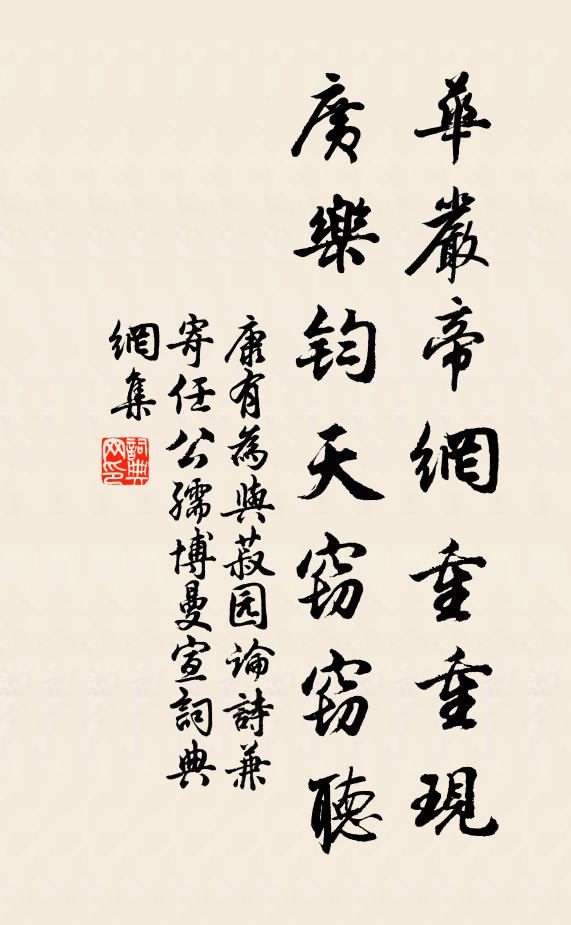 華嚴帝網重重現
廣樂鈞天窈窈聽
康有為與菽园論詩兼
寄任公孺博曼宣詞典
網集
詞典
网印